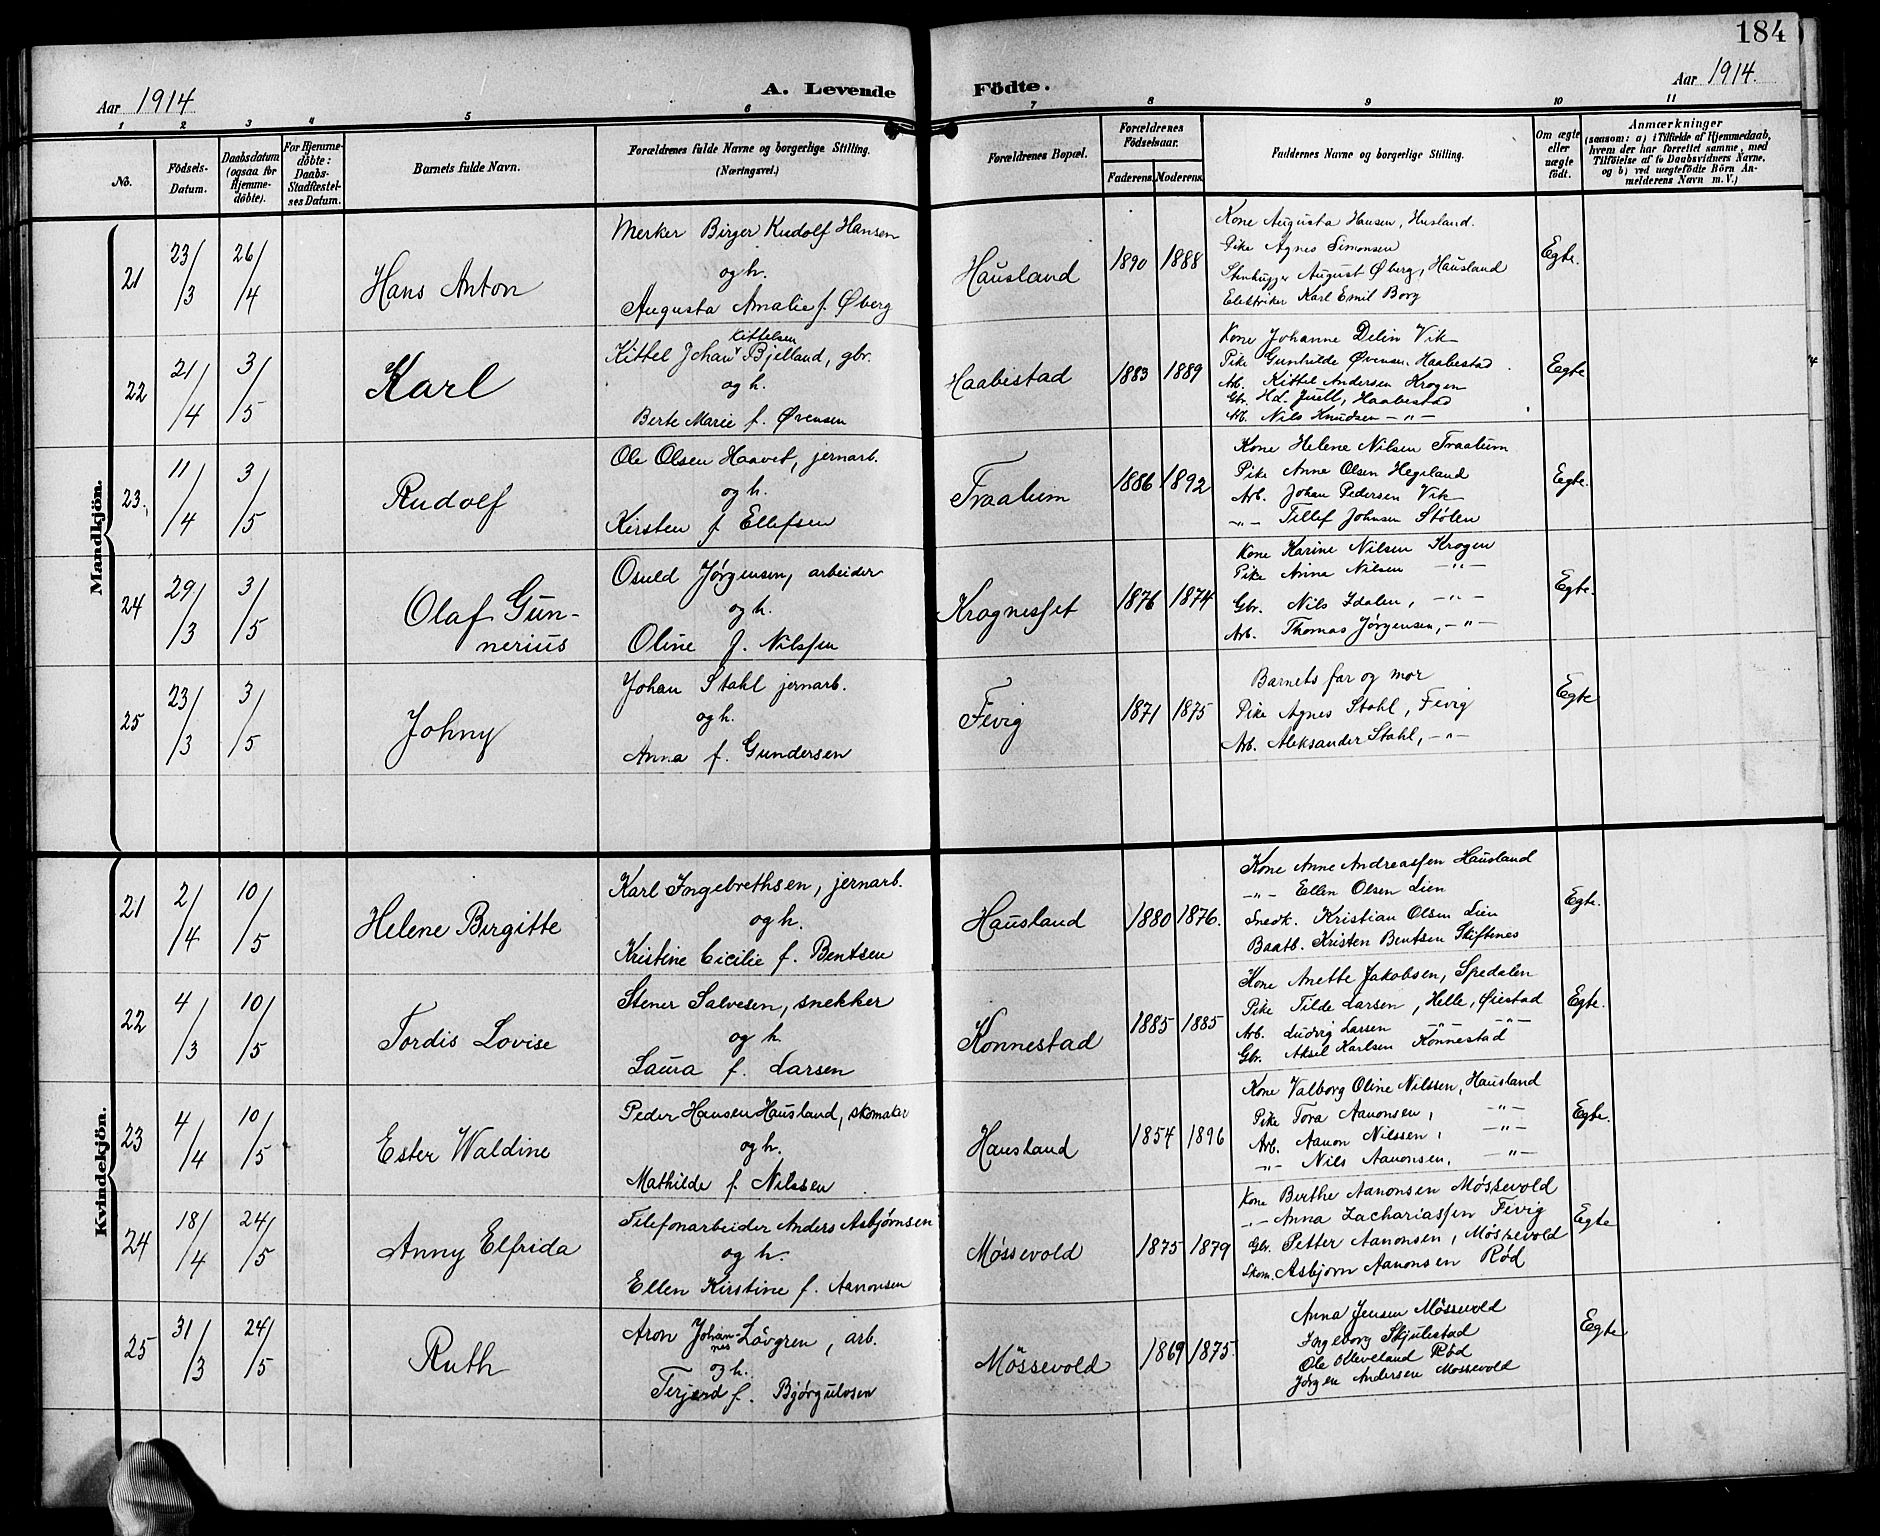 184
Aar 1914.
A. Levende Födte.
Aar 1914.
1 2 3 4 5 6 7 8 9 10 11
No.
Födsels-Datum.
Daabsdatum (ogsaa for Hjemmedöbte).
For Hjemmedöbte: Daabs-Stadfæstelses Datum.
Barnets fulde Navn.
Forældrenes fulde Navne og borgerlige Stilling.
(Næringsvei.)
Forældrenes Bopæl.
Forældrenes Födselsaar.
Faderens. Moderens.
Faddernes Navne og borgerlige Stilling.
Om ægte eller uægte født.
Anmærkninger
(saasom: a) i Tilfælde af Hjemmedaab, hvem der har forrettet samme, med Tilföielse af to Daabsvidners Navne, og b) ved uægtefödte Börn Anmelderens Navn m. V.)
Mandkjön.
21 23/3 26/4 Hans Anton
Merker Birger Rudolf Hansen
og h.
Augusta Amalie f. Øberg
Hausland 1890 1888
Kone Augusta Hansen, Husland.
Pike Agnes Simonsen
Stenhugger August Øberg, Hausland
Elektriker Karl Emil Borg
Egte.
22 21/4 3/5 Karl
Kittelsen
Kittel Johan Bjelland, gbr.
og h.
Berte Marie f. Øvensen
Haabestad 1883 1889
Kone Johanne Delin Vik
Pike Gunhilde Øvensen. Haabestad
Arb. Kittel Andersen Krogen
Gbr. Hd. Juell, Haabestad
Arb. Nils Knudsen -"-
Egte
23. 11/4 3/5 Rudolf
Ole Olsen Haavet, jernarb.
og h.
Kirsten f Ellefsen
Traalum 1886 1892
Kone Helene Nilsen Traalum
Pike Anne Olsen Hegiland
Arb. Johan Pedersen Vik
-"- Tellef Johnsen Stølen
Egte.
24 29/3 3/5 Olaf Gunnerius
Osuld Jørgensen, arbeider
og h.
Oline f. Nilssen
Krognesset 1876 1874
Kone Karine Nilsen Krogen
Pike Anna Nilsen -"-
Gbr. Nils Idalen, -"-
Arb. Thomas Jørgensen, -"-
Egte.
25 23/3 3/5 Johny
Johan Stahl jernarb.
og h.
Anna f. Gundersen
Fevig 1871 1875
Barnets far og mor
Pike Agnes Stahl, Fevig
Arb. Aleksander Stahl, -"-
Egte
Kvindekjön.
21 2/4 10/5 Helene Birgitte
Karl Ingebrethsen, jernarb.
og h.
Kristine Cicilie f. Bentsen
Hausland 1880 1876.
Kone Anne Andreassen Hausland
-"- Ellen Olsen Lien
Snedk. Kristian Olsen Lien
Baatb. Kristen Bentsen Stiftenes
Egte.
22 4/3 10/5 Tordis Lovise
Stener Salvesen, snekker
og h.
Laura f. Larsen
Konnestad 1885 1885
Kone Anette Jakobsen, Spedalen
Pike Tilde Larsen, Helle, Øiestad
Arb. Ludvig Larsen -"- -"-
Gbr. Aksel Karlsen Konnestad
Egte.
23 4/4 10/5 Ester Waldine
Peder Hansen Hausland, skomaker
og h.
Mathilde f Nilssen
Hausland 1854 1896
Kone Valborg Oline Nilssen, Hausland
Pike Tora Aanonsen, -"-
Arb. Aanon Nilssen, -"-
-"- Nils Aanonsen, -"-
Egte.
24 18/4 24/5 Anny Elfrida
Telefonarbeider Anders Asbjørnsen
og h.
Ellen Kirstine f. Aanonsen
Møssevold 1875 1879
Kone Berthe Aanonsen Møssevold
-"- Anna Zachariassen Fevig
Gbr. Petter Aanonsen, Møssevold
Skom. Asbjørn Aanonsen Rød
Egte
25 31/3 24/5 Ruth
Aron Johannes Lövgren, arb.
og h.
Terjerd f. Bjørgulvsen
Møssevold 1869 1875.
Anna Jensen Møssevold
Ingeborg Skjulestad
Ole Olleveland Rød
Jørgen Andersen Møssevold
Egte